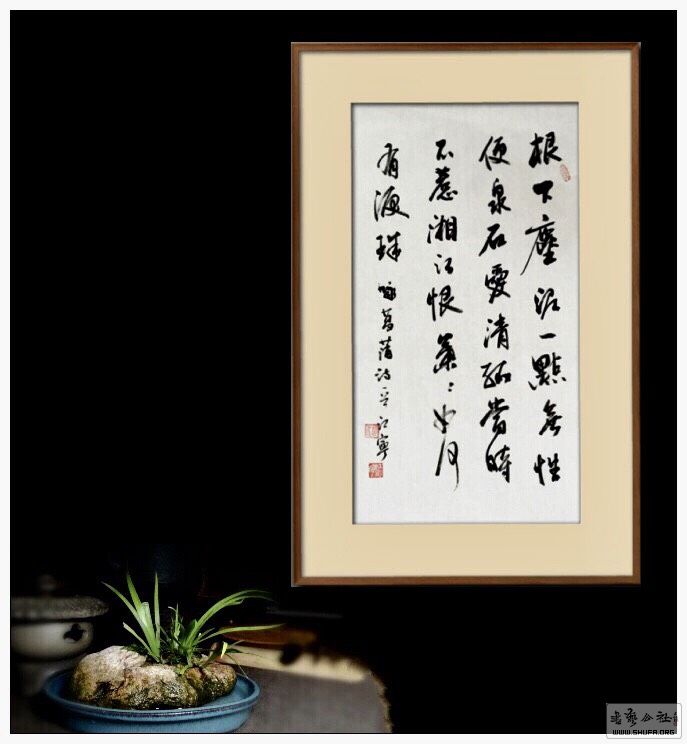 根下塵泥一點無性
便泉石愛清孤當時
不惹湘江恨葉〻如何
有淚珠 咏菖蒲詩 江寧
書藝公社
WWW.SHUFA.ORG